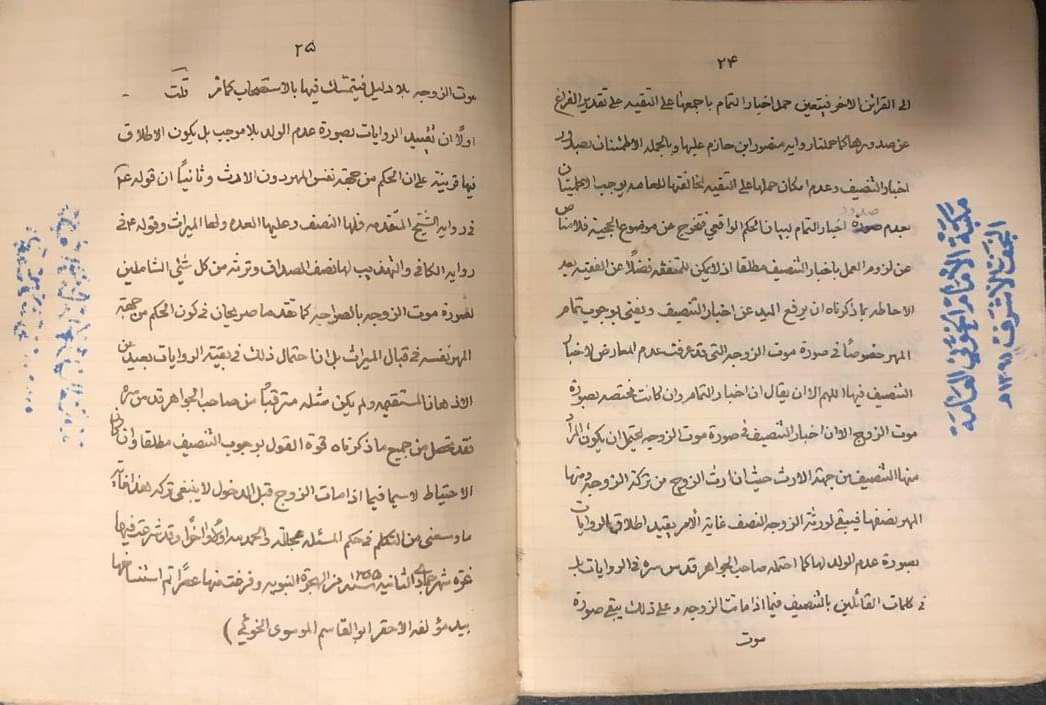 ۲۴
الى القرائن الاخر فيتعين حمل اخبار التمام باجمعها على التقيه على تقدير الفراغ
عن صدورها كما حملنا روايه منصور ابن حازم عليها وبالجمله الاطمئنان بصدور
اخبار التنصيف وعدم امكان حملها على التقيه لمخالفتها للعامه يوجب الاطمينان
بعدم صدور اخبار التمام لبيان الحكم الواقعي فتخرج عن موضوع الحجية فلا مناص
عن لزوم العمل باخبار التنصيف مطلقا اذ لا يمكن للمتفقه فضلًا عن الفقيه بعد
الاحاطه بما ذكرناه ان يرفع اليد عن اخبار التنصيف ويفتى بوجوب تمام
المهر خصوصًا فى صورة موت الزوجه التى قد عرفت عدم المعارض لاخبار
التنصيف فيها اللهم الا ان يقال ان اخبار التمام وان كانت مختصه بصورة
موت الزوج الا ان اخبار التنصيف فى صورة موت الزوجه يحتمل ان يكون المراد
منها التنصيف من جهة الارث حيث ان ارث الزوج من تركة الزوجة ومنها
المهر نصفها فيبقى لورثة الزوجه النصف غاية الأمر يقيد اطلاق الروايات
بصورة عدم الولد لها كما احتمله صاحب الجواهر قدس سره فى الروايات بل
فى كلمات القائلين بالتنصيف فيما اذا ماتت الزوجه وعلى ذلك يبقى صورة
موت
مكتبة الأمام الخوئي العامة
النجف الاشرف ١٣٩١هـ
۲۵
موت الزوجه بلا دليل فيتمسك فيها بالاستصحاب كما مر قلت
اولًا ان تقييد الروايات بصورة عدم الولد بلا موجب بل يكون الاطلاق
فيها قرينة على ان الحكم من جهة نفس المهر دون الارث وثانياً ان قوله ع
فى روايه الشيخ المتقدمه فلها النصف وعليها العده ولها الميراث وقوله ع فى
روايه الكافى والتهذيب لها نصف الصداق وترثه من كل شئ الشاملين
لصورة موت الزوجه بالصراحه كما تقدما صريحان فى كون الحكم من جهة
المهر نفسه فى قبال الميراث بل ان احتمال ذلك فى بقية الروايات بعيد عن
الاذهان المستقيمه ولم يكن مثله مترقباً من صاحب الجواهر قدس سره
فقد تحصل من جميع ما ذكرناه قوة القول بوجوب التنصيف مطلقا وان كان
الاحتياط لا سيما فيما اذا مات الزوج قبل الدخول لا ينبغى تركه هذا تمام
ما وسعنى من التكلم فى حكم المسئله عجالة والحمد لله اولًا واخرًا وقد شرعت فيها
غرة شهر جمادى الثانيه من الهجرة النبويه وفرغت منها عصرًا تم استنساخها
بيد مؤلفه الأحقر ابو القاسم الموسوى الخوئي )